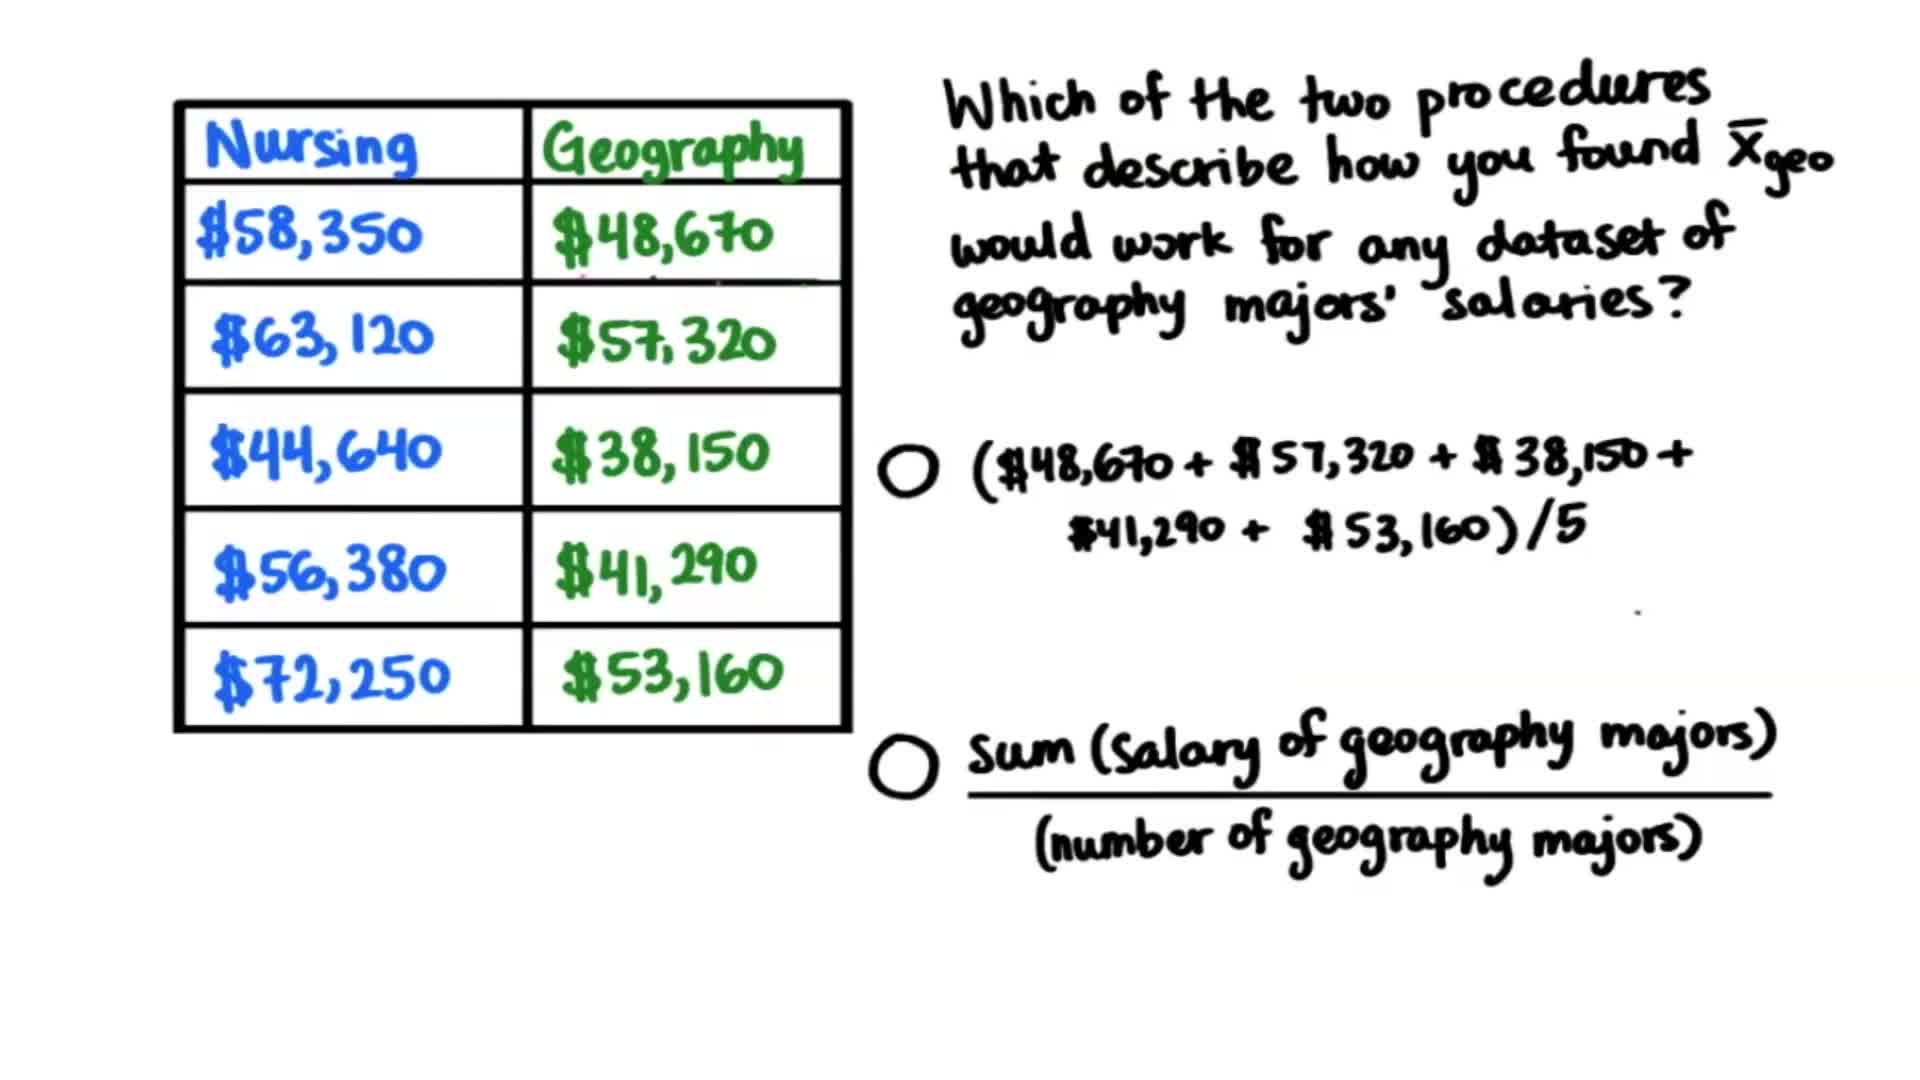 Nursing Geography
$58,350 $48,670
$63,120 $57,320
$44,640 $38,150
$56,380 $41,290
$72,250 $53,160
Which of the two procedures
that describe how you found x̄geo
would work for any dataset of
geography majors' salaries?
($48,670 + $57,320 + $38,150 +
$41,290 + $53,160) / 5
Sum (salary of geography majors)
(number of geography majors)